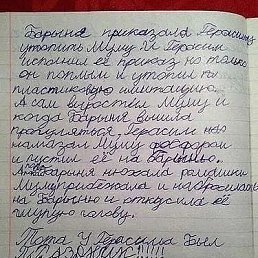 Барыня приказала Герасиму
утопить Муму. И Герасим
исполнил её приказ но только
он поплыл и утопил
пластиковую имитацию.
А сам вырастил Муму и
когда Барыня вышла
прогуляться, Герасим
намазал Муму фосфором
и пустил её на Барыню.
Барыня нюхала ромашки
Муму прибежала и набросилась
на Барыню и откусила её
глупую голову.
Тота У Герасима Был
ПРАЗДНИК!!!!!